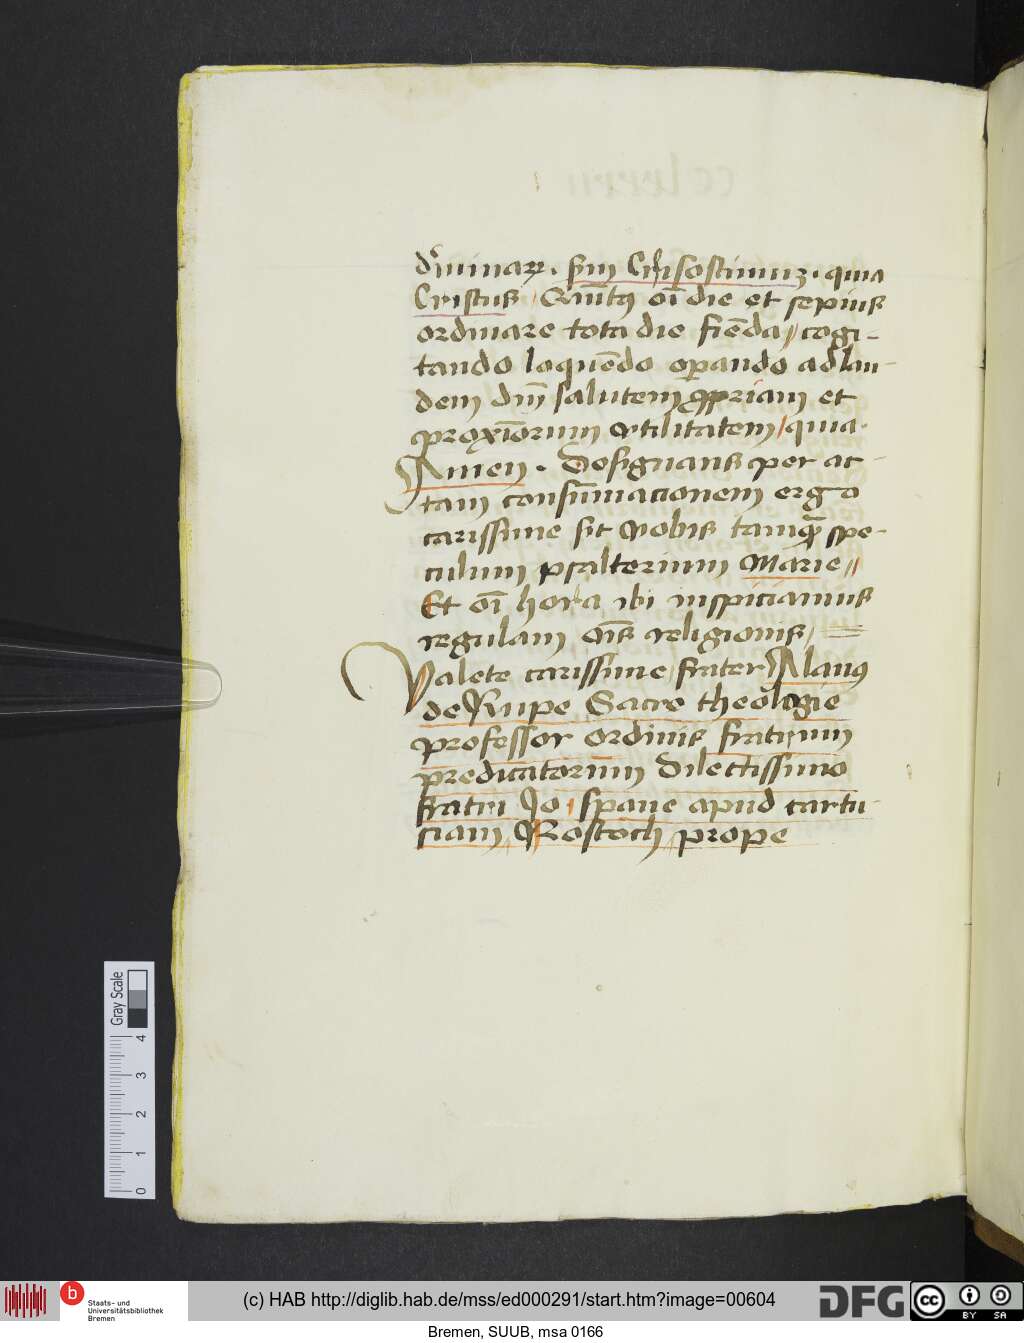 diuinaꝝ. scd͞m Crisostimuʒ. quia
Cristus / Qua͞tꝰ oi͞ die et sepius
ordinare tota die fie͞da // cogi-
tando loque͞do oꝑando ad lau-
dem dni͞ salutem ꝓpriam et
proxi͞orum vtilitatem / quia
Amen. Designans per ac-
tam consu͞macionem ergo
carissime sit Nobis tamqͣ spe-
culum psalterium Marie //
Et oi͞ hora ibi inspiciamus
regulam oi͞s religionis /
Valete carissime frater Alanꝰ
de Rupe Sacre theologie
professor ordinis fratrum
predicatorum Dilectissimo
fratri Jo / spane apud cartu-
ciam // Rostoch // prope
Gray Scale
0 1 2 3 4
b
Staats- und
Universitätsbibliothek
Bremen
(c) HAB http://diglib.hab.de/mss/ed000291/start.htm?image=00604
DFG
cc
BY SA
Bremen, SUUB, msa 0166